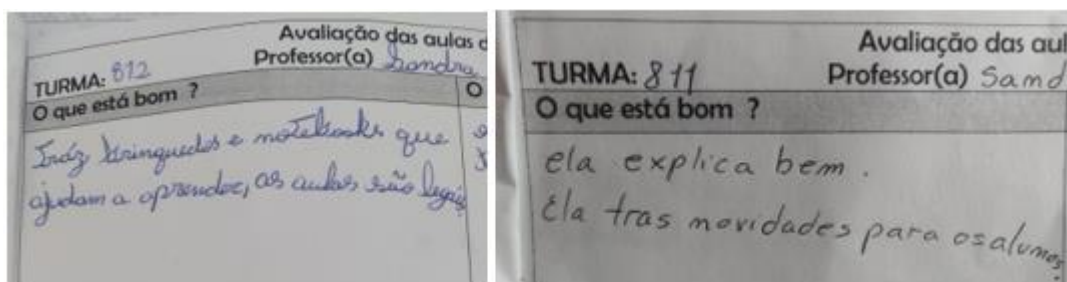 Avaliação das aulas d
TURMA: 812 Professor(a) Sandra
O que está bom ? O
Tráz brinquedos e notebooks que
ajudam a aprender, as aulas são legais.
Avaliação das aul
TURMA: 811 Professor(a) Sand
O que está bom ?
ela explica bem.
Ela tras novidades para os alunos.